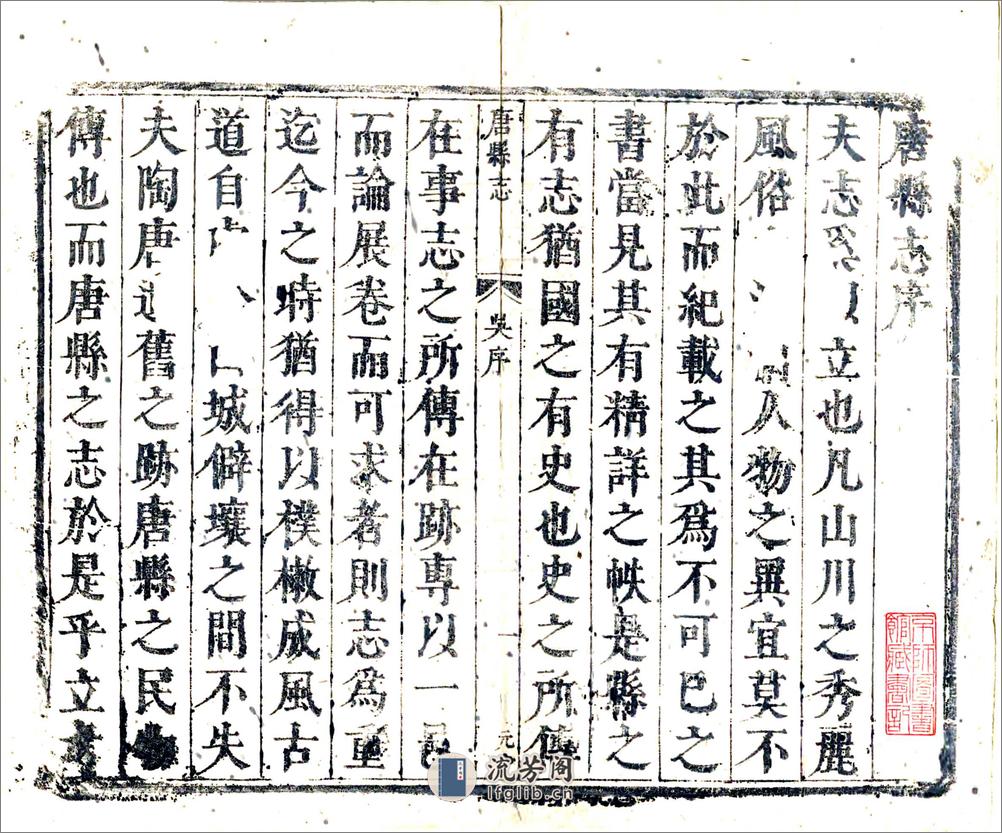 唐縣志序
夫志 立也凡山川之秀麗
風俗 人物之異宜莫不
於此而紀載之其爲不可已之
書當見其有精詳之帙是縣之
有志猶國之有史也史之所傳
唐縣志 吳序 一 元
在事志之所傳在跡專以一邑
而論展卷而可求者則志爲重
迄今之時猶得以樸樕成風古
道自 城僻壤之間不失
夫陶唐 舊之跡唐縣之民
傳也而唐縣之志於是乎立
京師圖書館藏書記
流芳阁
lfglib.cn